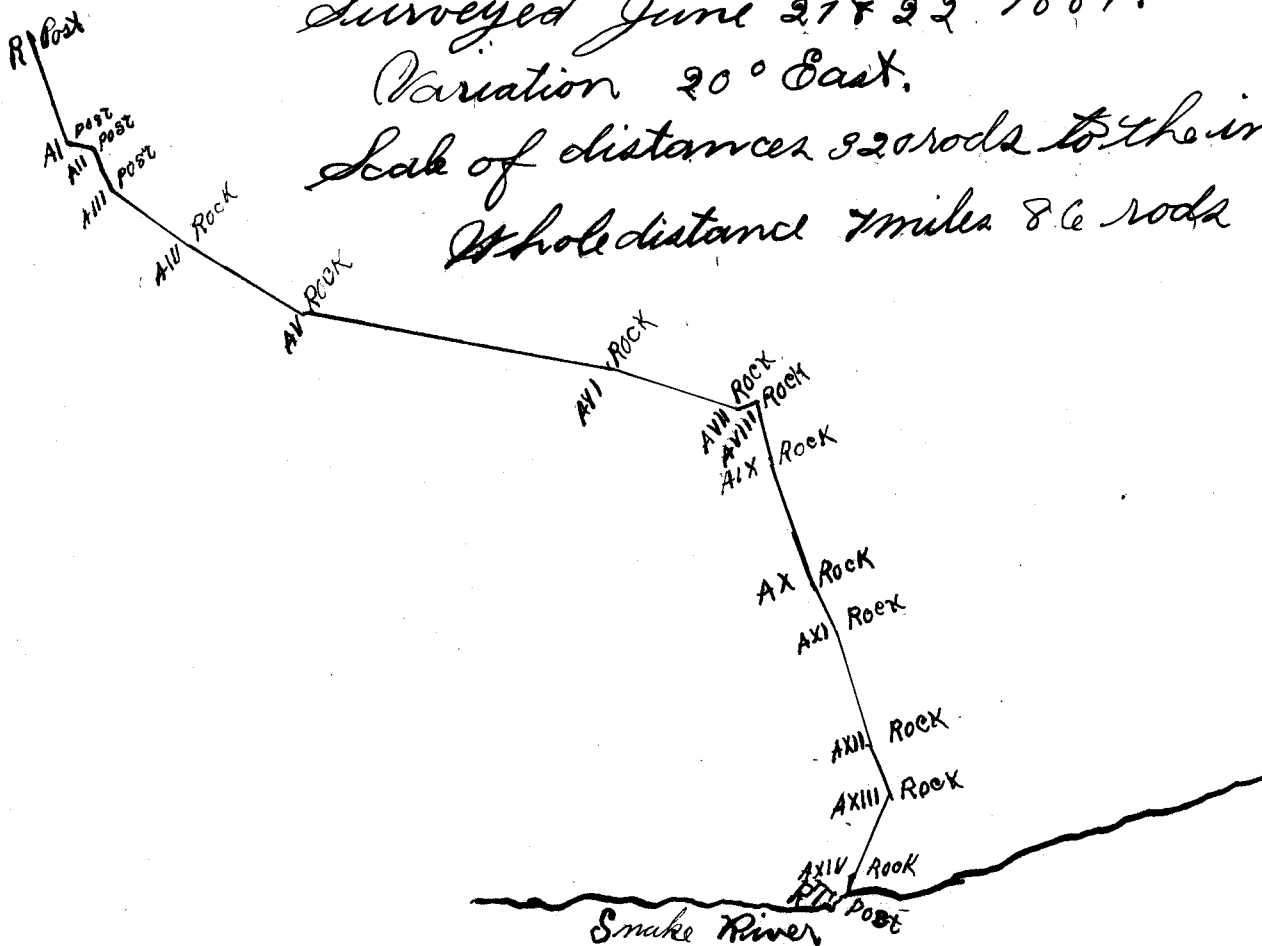 Surveyed June 21 & 22 1881.
Variation 20° East.
Scale of distances 320 rods to the in
Whole distance 7 miles 86 rods
R Post
AI Post
AII Post
AIII Post
AIV Rock
AV Rock
AVI Rock
AVII Rock
AVIII Rock
AIX Rock
AX Rock
AXI Rock
AXII Rock
AXIII Rock
AXIV Rock
Post
Snake River